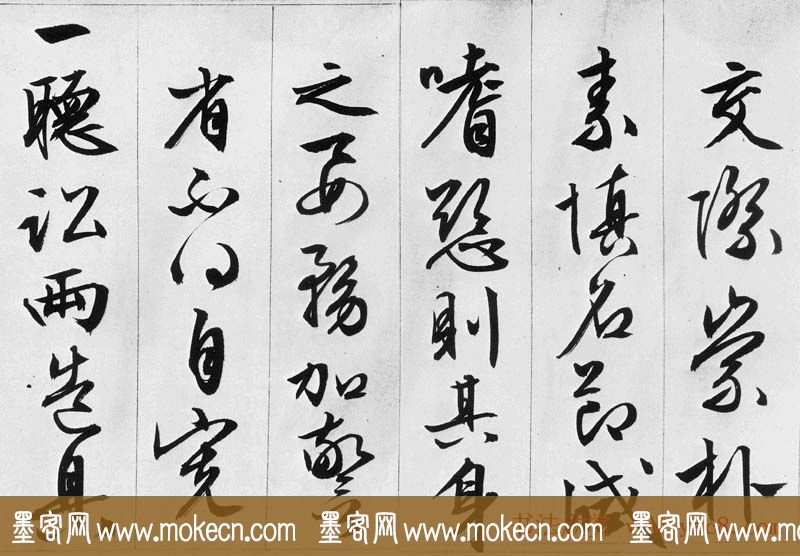 交際崇朴
素慎名節減
嗜慾則其身
之要務加警
省不可自寬
一聽訟兩造具
墨客网 www.mokecn.com 墨客网 www.mokecn.com 墨客网 www.mokecn.com